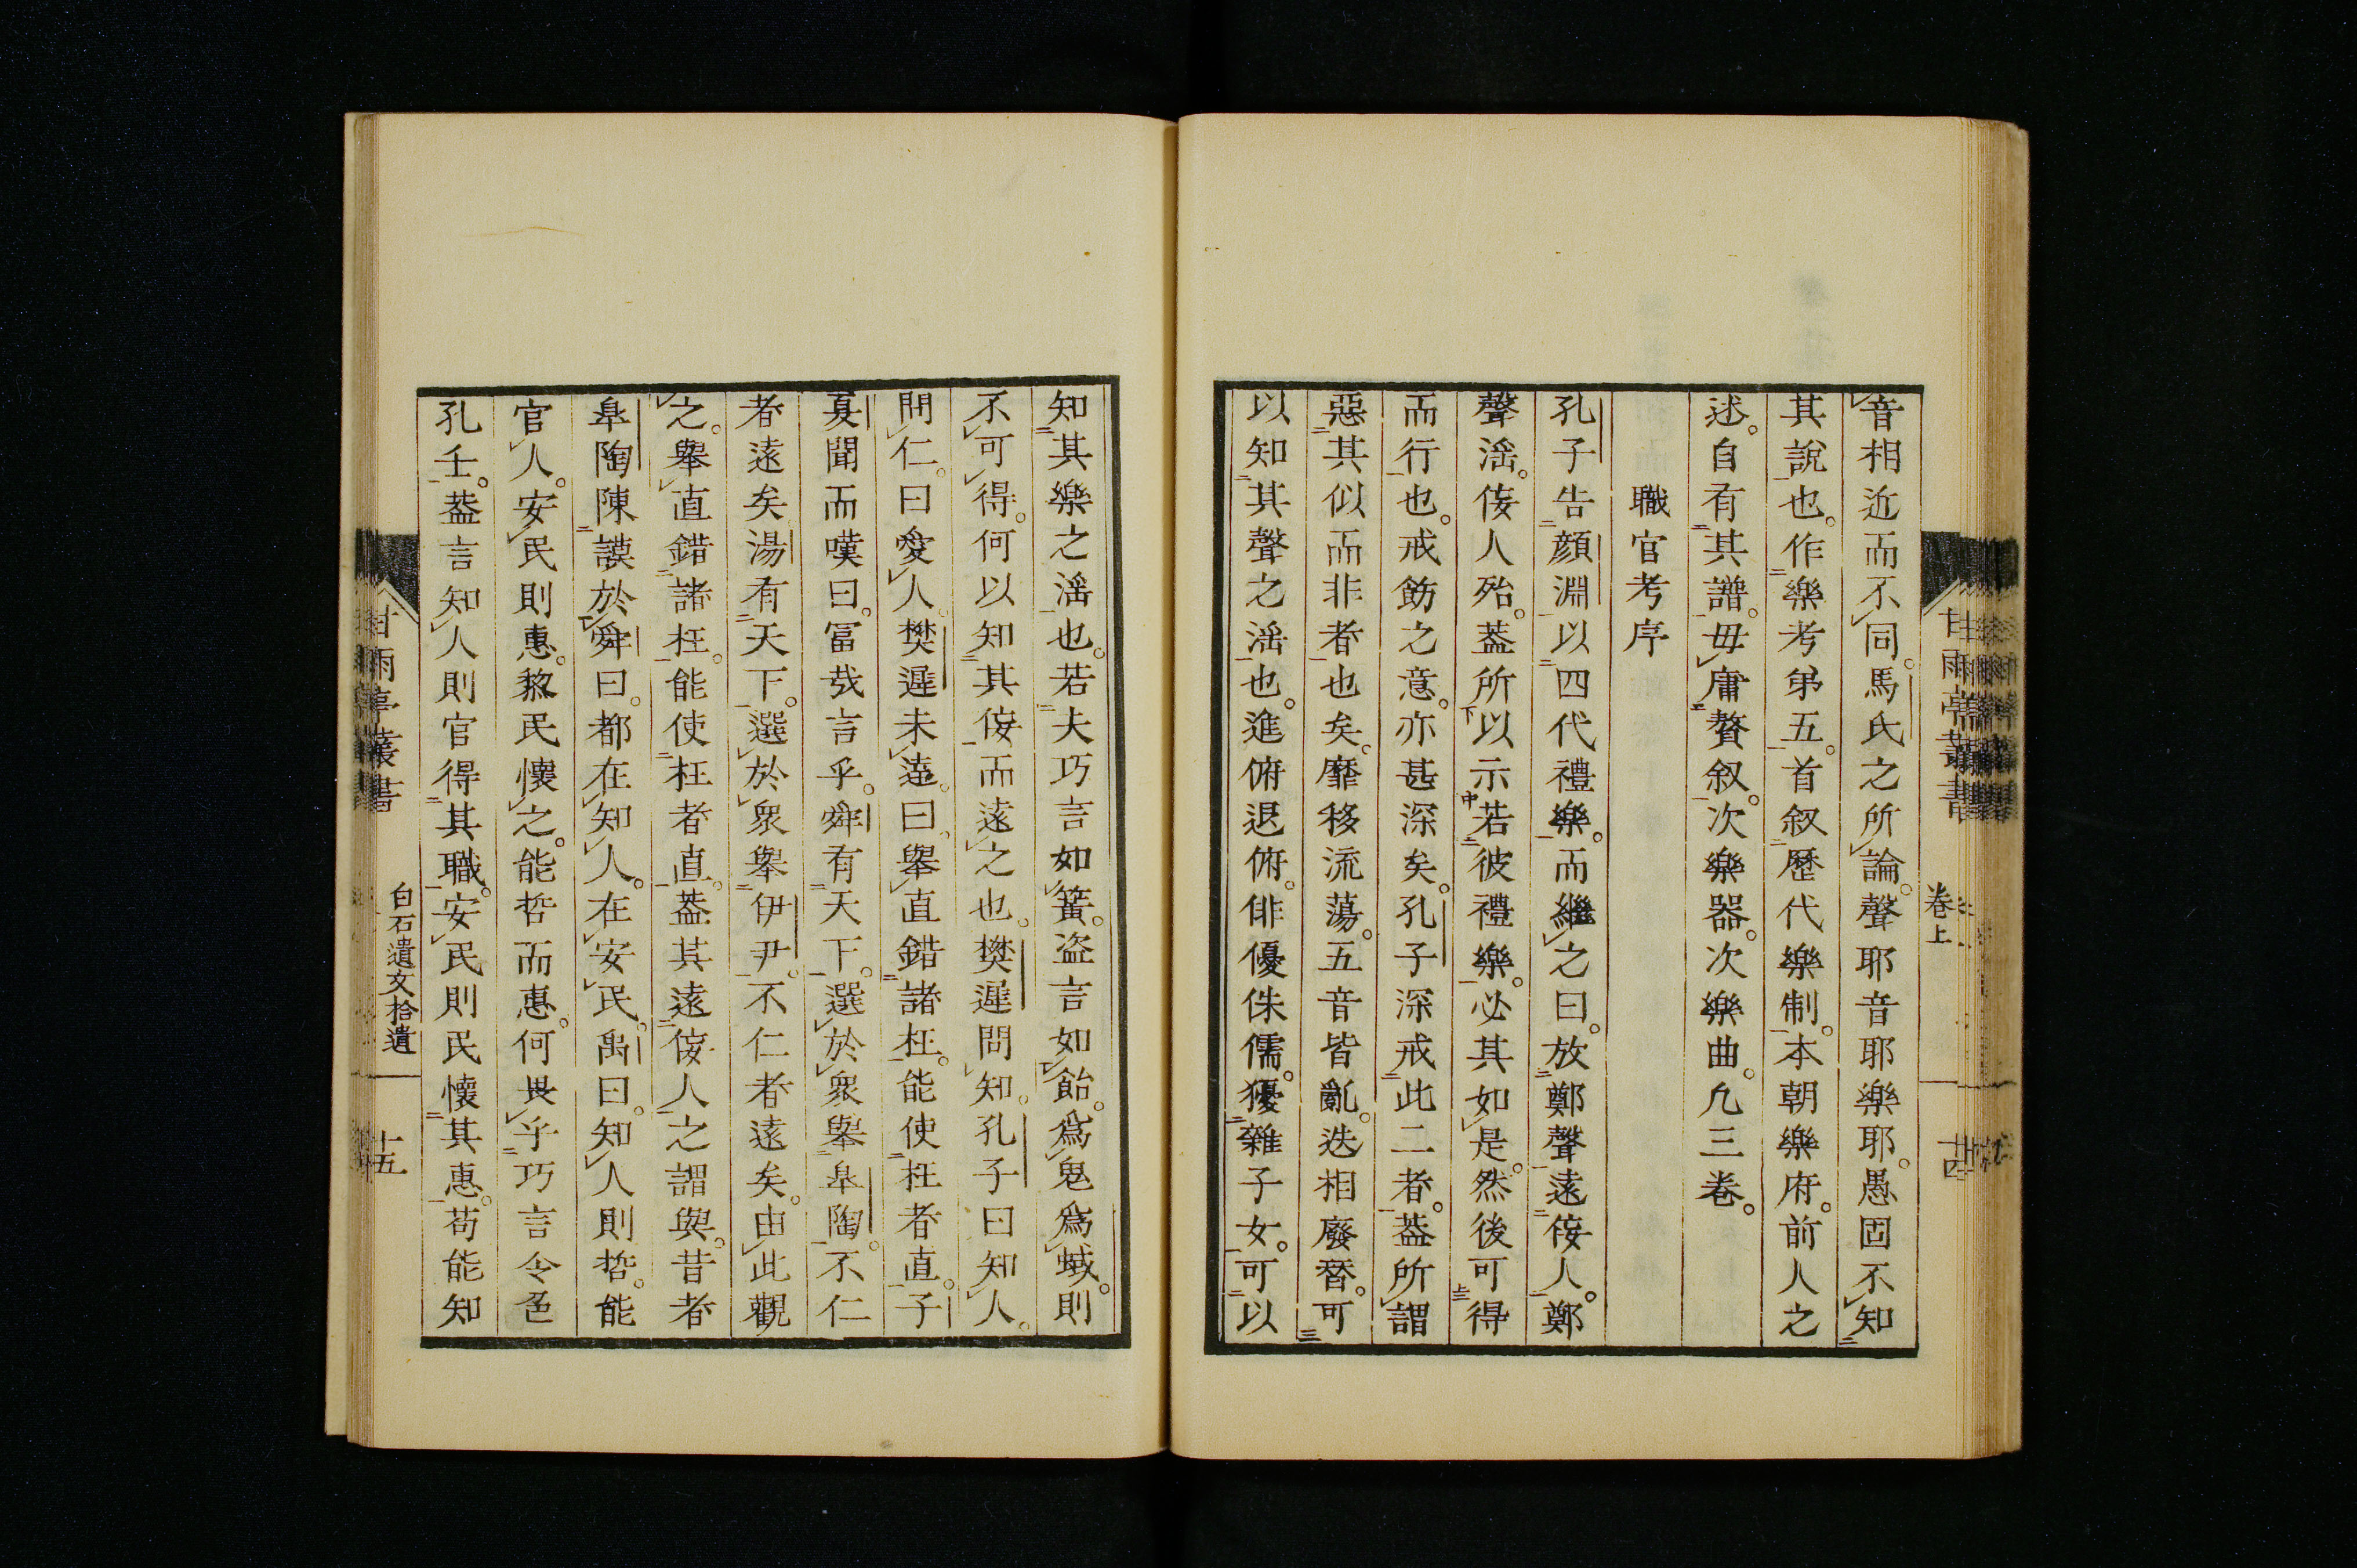 音相近而不同。馬氏之所論。聲耶音耶樂耶。愚固不知
其說也。作樂考第五。首叙歷代樂制。本朝樂府。前人之
述。自有其譜。毋庸贅叙。次樂器。次樂曲。凢三卷。
職官考序
孔子告顔淵以四代禮樂。而繼之曰。放鄭聲遠侫人。鄭
聲滛。侫人殆。葢所以示若彼禮樂。必其如是。然後可得
而行也。戒飭之意。亦甚深矣。孔子深戒此二者。葢所謂
惡其似而非者也矣。靡移流蕩。五音皆亂。迭相廢替。可
以知其聲之滛也。進俯退俯。俳優侏儒。獶雜子女。可以
知其樂之滛也。若夫巧言如簧。盗言如飴。爲鬼爲蜮。則
不可得。何以知其侫而遠之也。樊遲問知。孔子曰知人。
問仁。曰愛人。樊遲未達。曰。舉直錯諸枉。能使枉者直。子
夏聞而嘆曰。冨哉言乎。舜有天下。選於衆舉皐陶。不仁
者遠矣湯有天下。選於衆舉伊尹。不仁者遠矣。由此觀
之。舉直錯諸枉。能使枉者直。葢其遠侫人之謂與。昔者
皐陶陳謨於舜曰。都在知人。在安民。禹曰。知人則哲。能
官人。安民則惠。黎民懷之。能哲而惠。何畏乎巧言令色
孔壬。葢言知人則官得其職。安民則民懷其惠。苟能知
甘雨亭叢書
卷上
十四
甘雨亭叢書
白石遺文拾遺
十五